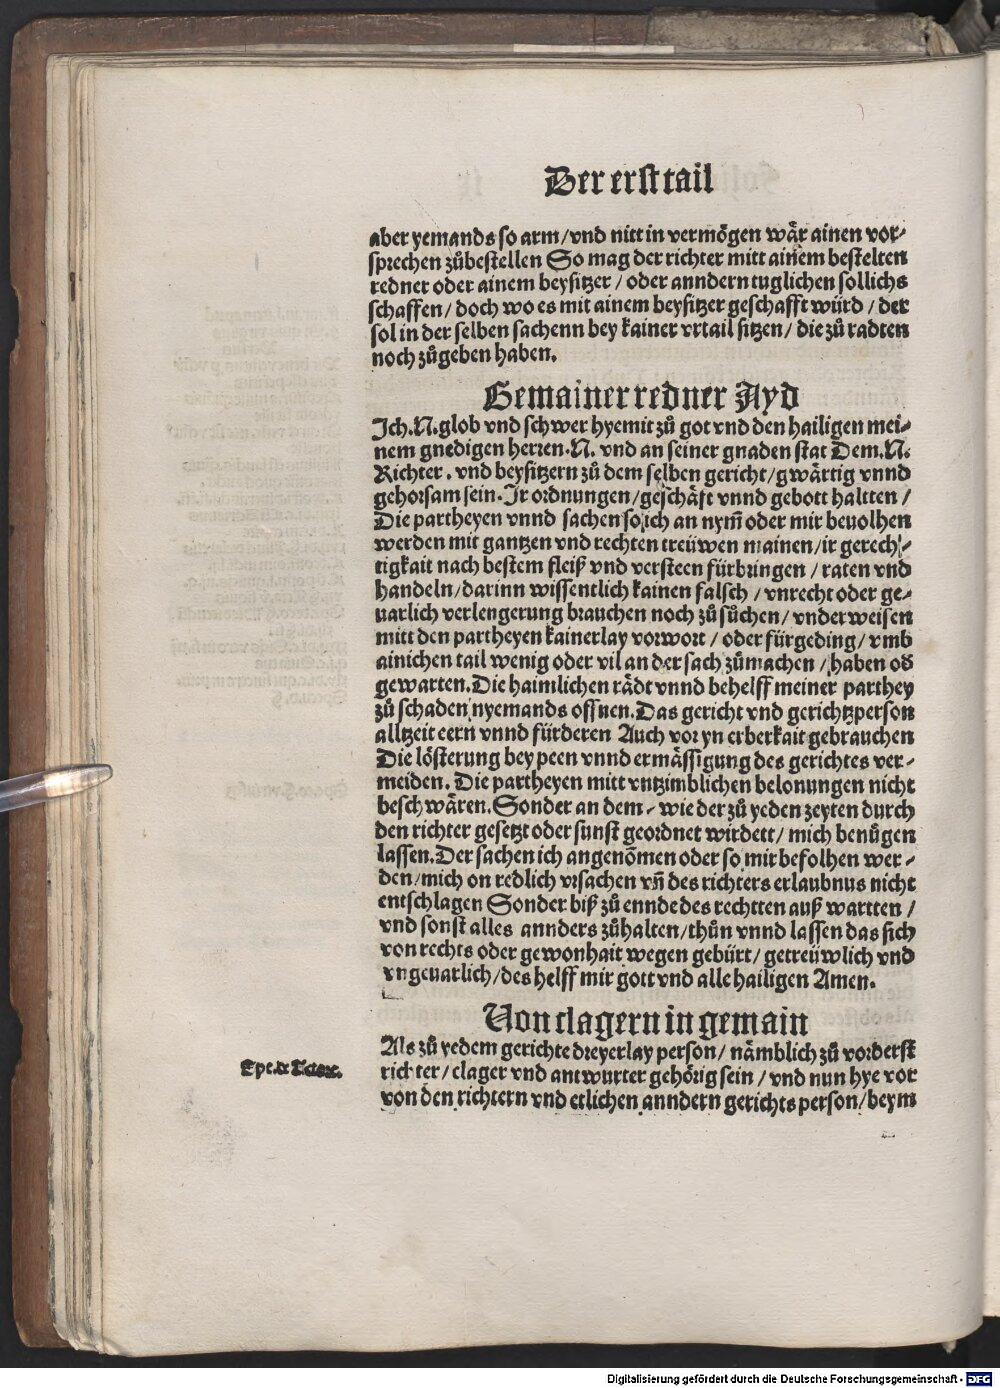 Der erst tail
aber yemands so arm / vnd nitt in vermögen wär ainen vor-
sprechen zůbestellen So mag der richter mitt ainem bestelten
redner oder ainem beysitzer / oder anndern tuglichen sollichs
schaffen / doch wo es mit ainem beysitzer geschafft würd / der
sol in der selben sachenn bey kainer vrtail sitzen / die zů radten
noch zůgeben haben.
Gemainer redner Ayd
Ich. N. glob vnd schwer hyemit zů got vnd den hailigen mei-
nem gnedigen herren. N. vnd an seiner gnaden stat Dem. N.
Richter. vnd beysitzern zů dem selben gericht / gwärtig vnnd
gehorsam sein. Ir ordnungen / geschäft vnnd gebott haltten /
Die partheyen vnnd sachen so ich an nym̄ oder mir beuolhen
werden mit gantzen vnd rechten treüwen mainen / ir gerech-
tigkait nach bestem fleiß vnd versteen fürbringen / raten vnd
handeln / darinn wissentlich kainen falsch / vnrecht oder ge-
uarlich verlengerung brauchen noch zů sůchen / vnderweisen
mitt den partheyen kainerlay vorwort / oder fürgeding / vmb
ainichen tail wenig oder vil an der sach zůmachen / haben od
gewarten. Die haimlichen rädt vnnd behelff meiner parthey
zů schaden nyemands offnen. Das gericht vnd gerichtzperson
alltzeit eern vnnd fürderen Auch vor yn erberkait gebrauchen
Die lösterung bey peen vnnd ermässigung des gerichtes ver-
meiden. Die partheyen mitt vntzimblichen belonungen nicht
beschwären. Sonder an dem - wie der zů yeden zeyten durch
den richter gesetzt oder sunst geordnet wirdett / mich benügen
lassen. Der sachen ich angenōmen oder so mir befolhen wer-
den / mich on redlich vrsachen vn̄ des richters erlaubnus nicht
entschlagen Sonder biß zů ennde des rechtten auß wartten /
vnd sonst alles annders zůhalten / thůn vnnd lassen das sich
von rechts oder gewonhait wegen gebürt / getreüwlich vnd
vngeuarlich / des helff mir gott vnd alle hailigen Amen.
Von clagern in gemain
Als zů yedem gerichte dreyerlay person / nämblich zů vorderst
richter / clager vnd antwurter gehörig sein / vnd nun hye vor
von den richtern vnd etlichen anndern gerichts person / beym
Digitalisierung gefördert durch die Deutsche Forschungsgemeinschaft - DFG